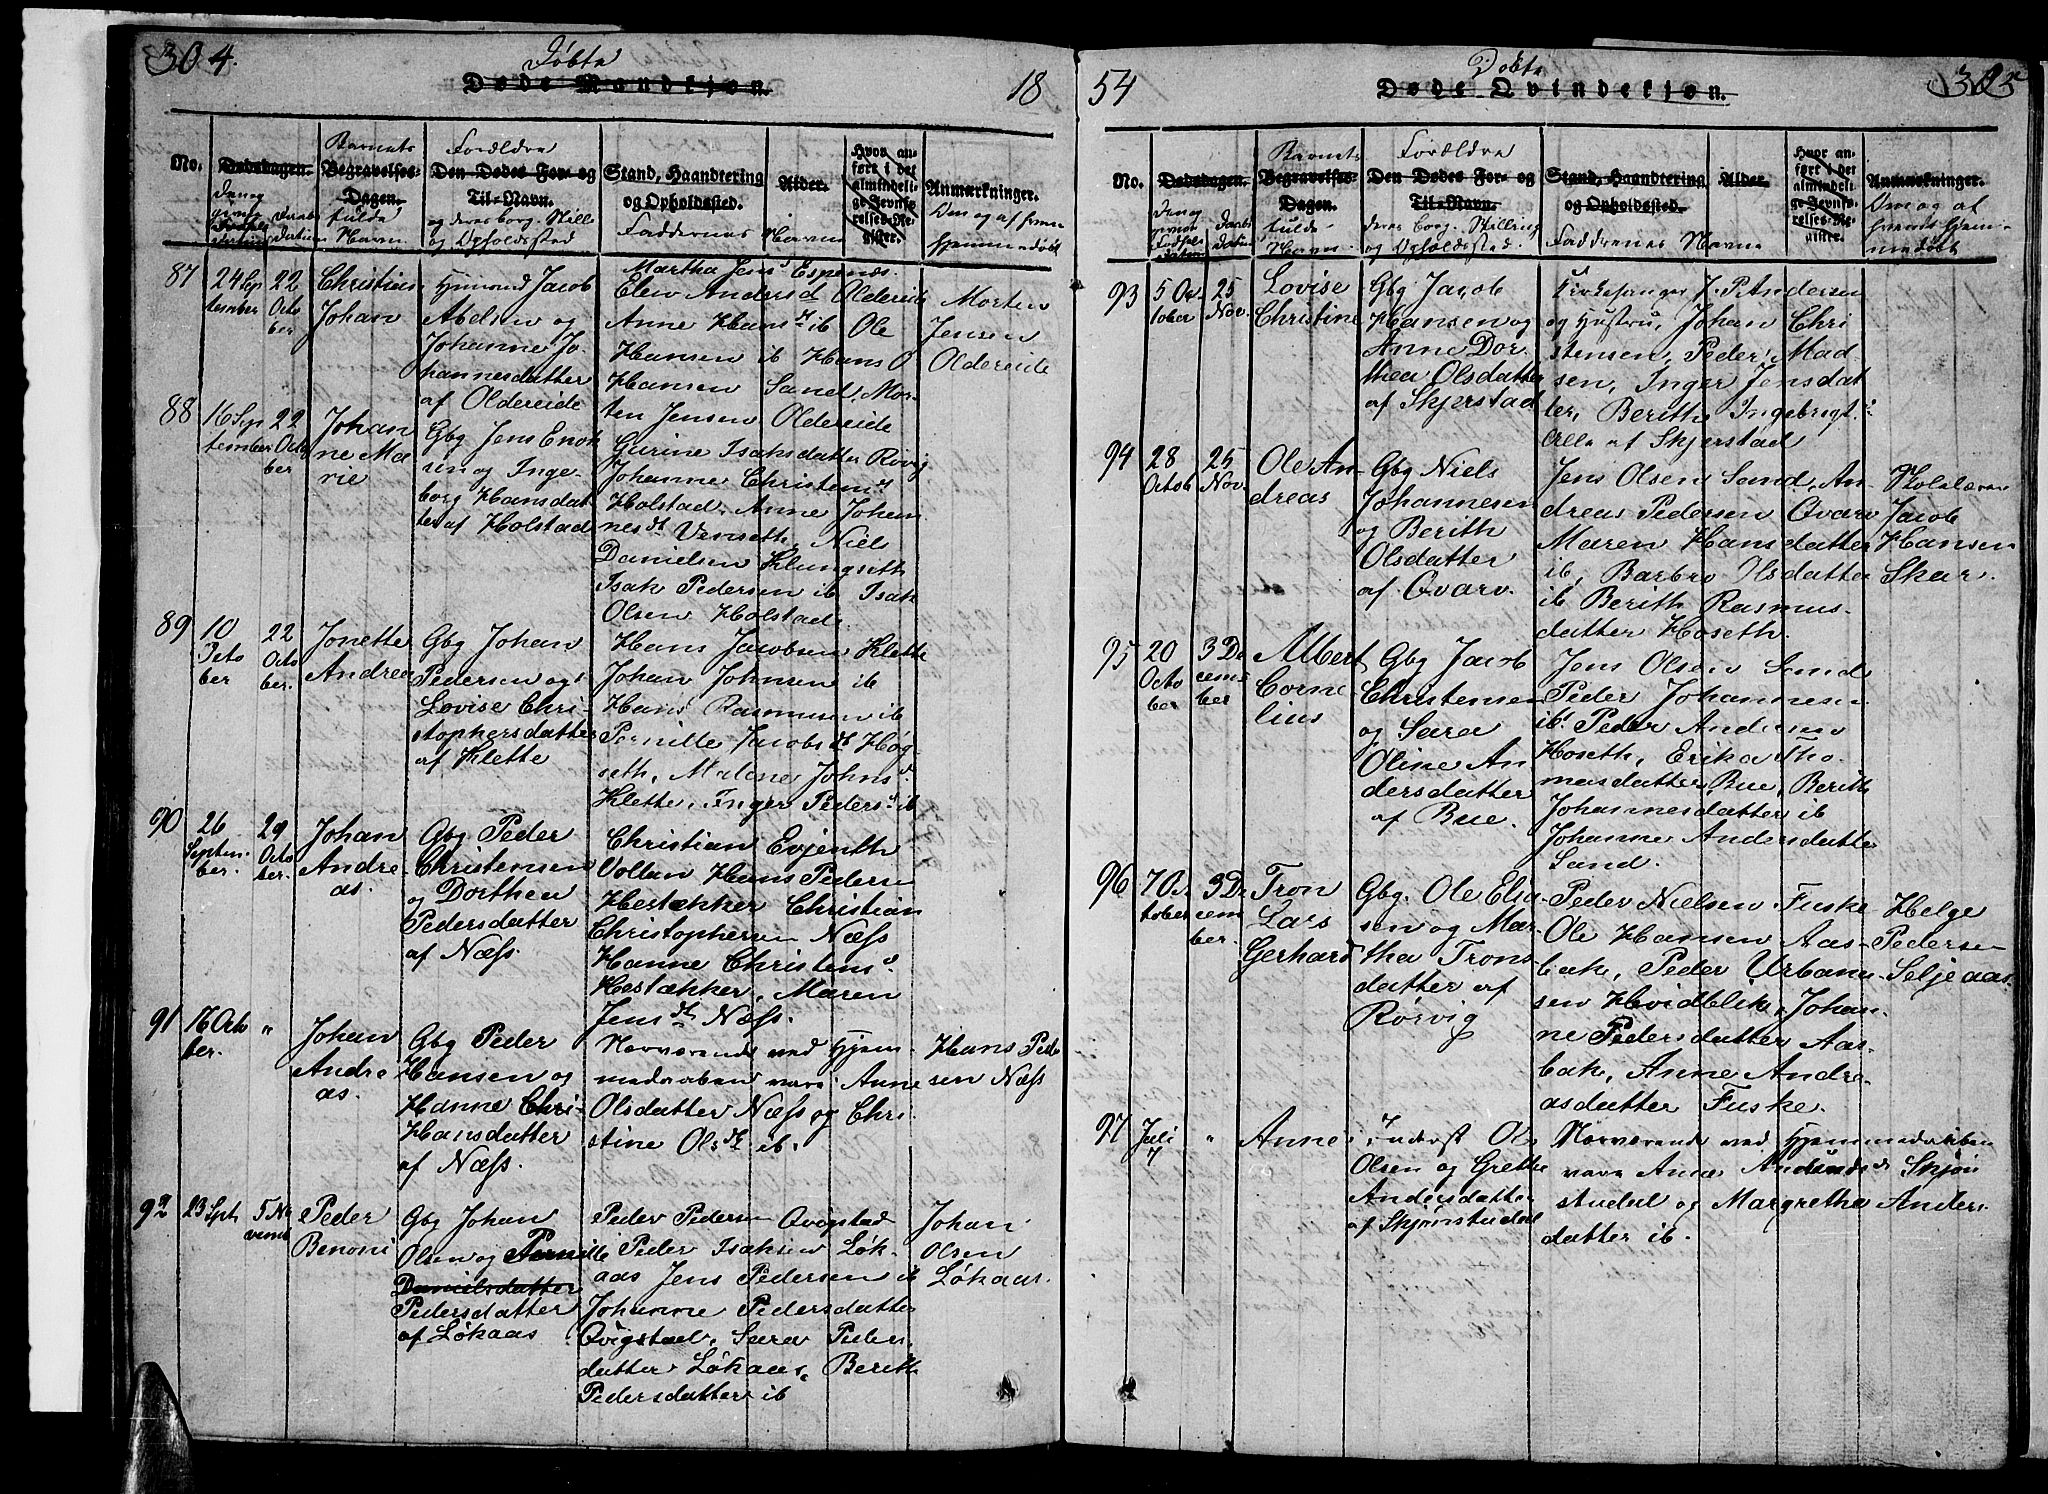 304.
Døbte
Døde Mandkjøn.
18
No.
Dødsdagen.
Barnets
Begravelses-
Dagen.
fulde
Navn
Forældre
Den Dødes For- og
Til-Navn.
og deres borg. Still.
og Opholdssted
Stand, Haandtering
og Opholdssted.
Faddernes Navne
Alder.
Hvor an-
ført i det
almindeli-
ge Jevnfø-
relses-Re-
gister.
Anmærkninger.
Om og af hvem
hjemmedøbt
87
24 Sep
tember
22
Octo
ber
Christian
Johan
Huusmd Jacob
Abelsen og
Johanne Jo
hannesdatter
af Oldereide
Martha Jensd Espenæs
Elew Andersd Oldereide
Anne Hansdt ib Ole
Hansen ib Hans O
Hansen Sand, Mor-
ten Jensen Oldereide
Morten
Jensen
Oldereide
88
16 Sep
tember
22
Octo
ber
Johan
ne Ma
rie
Gbg Jens Enok
sen og Inge
borg Hansdat
ter af Holstad
Gurine Isaksdatter Røvig
Johanne Christensd
Holstad, Anne Johan
nesdt Venseth, Niels
Danielsen Klungseth
Isak Pedersen ib Isak
Olsen Holstad.
89
10
Octo
ber
22
Octo
ber.
Jonette
Andrea
Gbg Johan
Pedersen og
Lovise Chri-
stophersdatter
af Klette
Hans Jacobsen Klette
Johan Johnsen ib
Hans Rasmusen ib
Pernille Jacobsdt Høg
seth, Malene Johnsd
Klette, Inger Pedersd ib
90
26
Septem-
ber.
29
Octo
ber.
Johan
Andre
as.
Gbg Peder
Christensen
og Dorthea
Pedersdatter
af Næss.
Christian Evjenth
Voltan Hans Pedersen
Hestækker Christian
Christophersen Næss
Hanne Christensd
Hestækker, Maren
Jensdt Næss.
91
16 Octo
ber.
"
Johan
Andre
as.
Gbg Peder
Hansen og
Hanne Chri-
Hansdatter
af Næss.
Nærværende ved Hjem-
medaaben vare Anne
Olsdatter Næss og Chri
stine Olsdt ib.
Hans Peder
sen Næss
92
23 Sept
5 No
vemb
Peder
Benoni
Gbg Johan
Olsen og Pernille
Danielsdatter
Pedersdatter
af Løkaas
Peder Pedersen Qvigstad
Peder Isaksen Løk-
aas Jens Pedersen ib
Johanne Pedersdatter
Qvigstad, Sara Peders
datter Løkaas, Berith
Pedersdatter ib
Johan
Olsen
Løkaas.
54
Døbte
Døde Qvindekjøn.
305
No.
Dødsdagen.
Barnets
Begravelses-
Dagen.
fulde
Navn
Forældre
Den Dødes For- og
Til-Navn.
deres borg. Stilling
og Opholdssted.
Stand, Haandtering
og Opholdssted.
Faddernes Navne
Alder.
Hvor an-
ført i det
almindeli-
ge Jevnfø-
relses-Re-
gister.
Anmærkninger.
Om og af
hvem hjem-
medøbt
93
5 Oc
tober
25
Nov.
Lovise
Christine
Gbg Jacob
Hansen og
Anne Dor-
thea Olsdatter
af Skjerstad
Kirkesanger J. P. Andersen
og Hustru, Johan Chri
stensen, Peder Mad
sen, Inger Jensdat
ter, Berith Ingebrigtd
Alle af Skjerstad
94
28
Octob
25
Nov.
Ole An-
dreas
Gbg Niels
Johannesen
og Berith
Olsdatter
af Qvarv.
Jens Olsen Sand, An-
dreas Pedersen Qvarv
Maren Hansdatter
ib, Barbro Olsdatter
ib Berith Rasmus-
datter Hoseth.
Skolelærer
Jacob
Hansen
Skar.
95
20
Octo
ber
3 De
cem
ber
Albert
Corne
lius
Gbg Jacob
Christensen
og Sara
Oline An
dersdatter
af Bue.
Jens Olsen Sand
Peder Johannesen
ib. Peder Andersen
Hoseth, Erika Tho
masdatter Bue, Berith
Johannesdatter ib
Johanne Andersdatter
Sand.
96
7 Oc
tober
3 De
cem
ber.
Tron
Lars
Gerhard
Gbg. Ole Elia-
sen og Mar-
tha Trons
datter af
Rørvig
Peder Nielsen Fuske
Ole Hansen Aas-
bak, Peder Urban-
sen Hvidblik, Johan-
ne Pedersdatter Aas-
bak, Anne Andre-
asdatter Fuske.
Helge
Pedersen
Seljeaas.
97
Juli
7
"
Anne
Inderst Ole
Olsen og Grethe
Andersdatter
af Skjønstudal
Nærværende ved Hjemmedaaben
vare Anne Skjøn
studal og Margrethe Anders
datter ib.